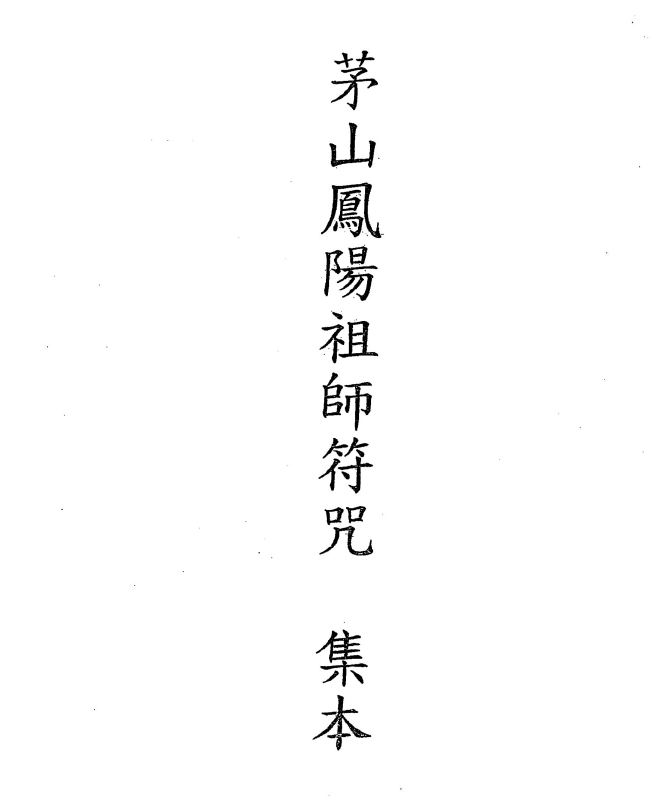 茅山鳳陽祖師符咒 集本